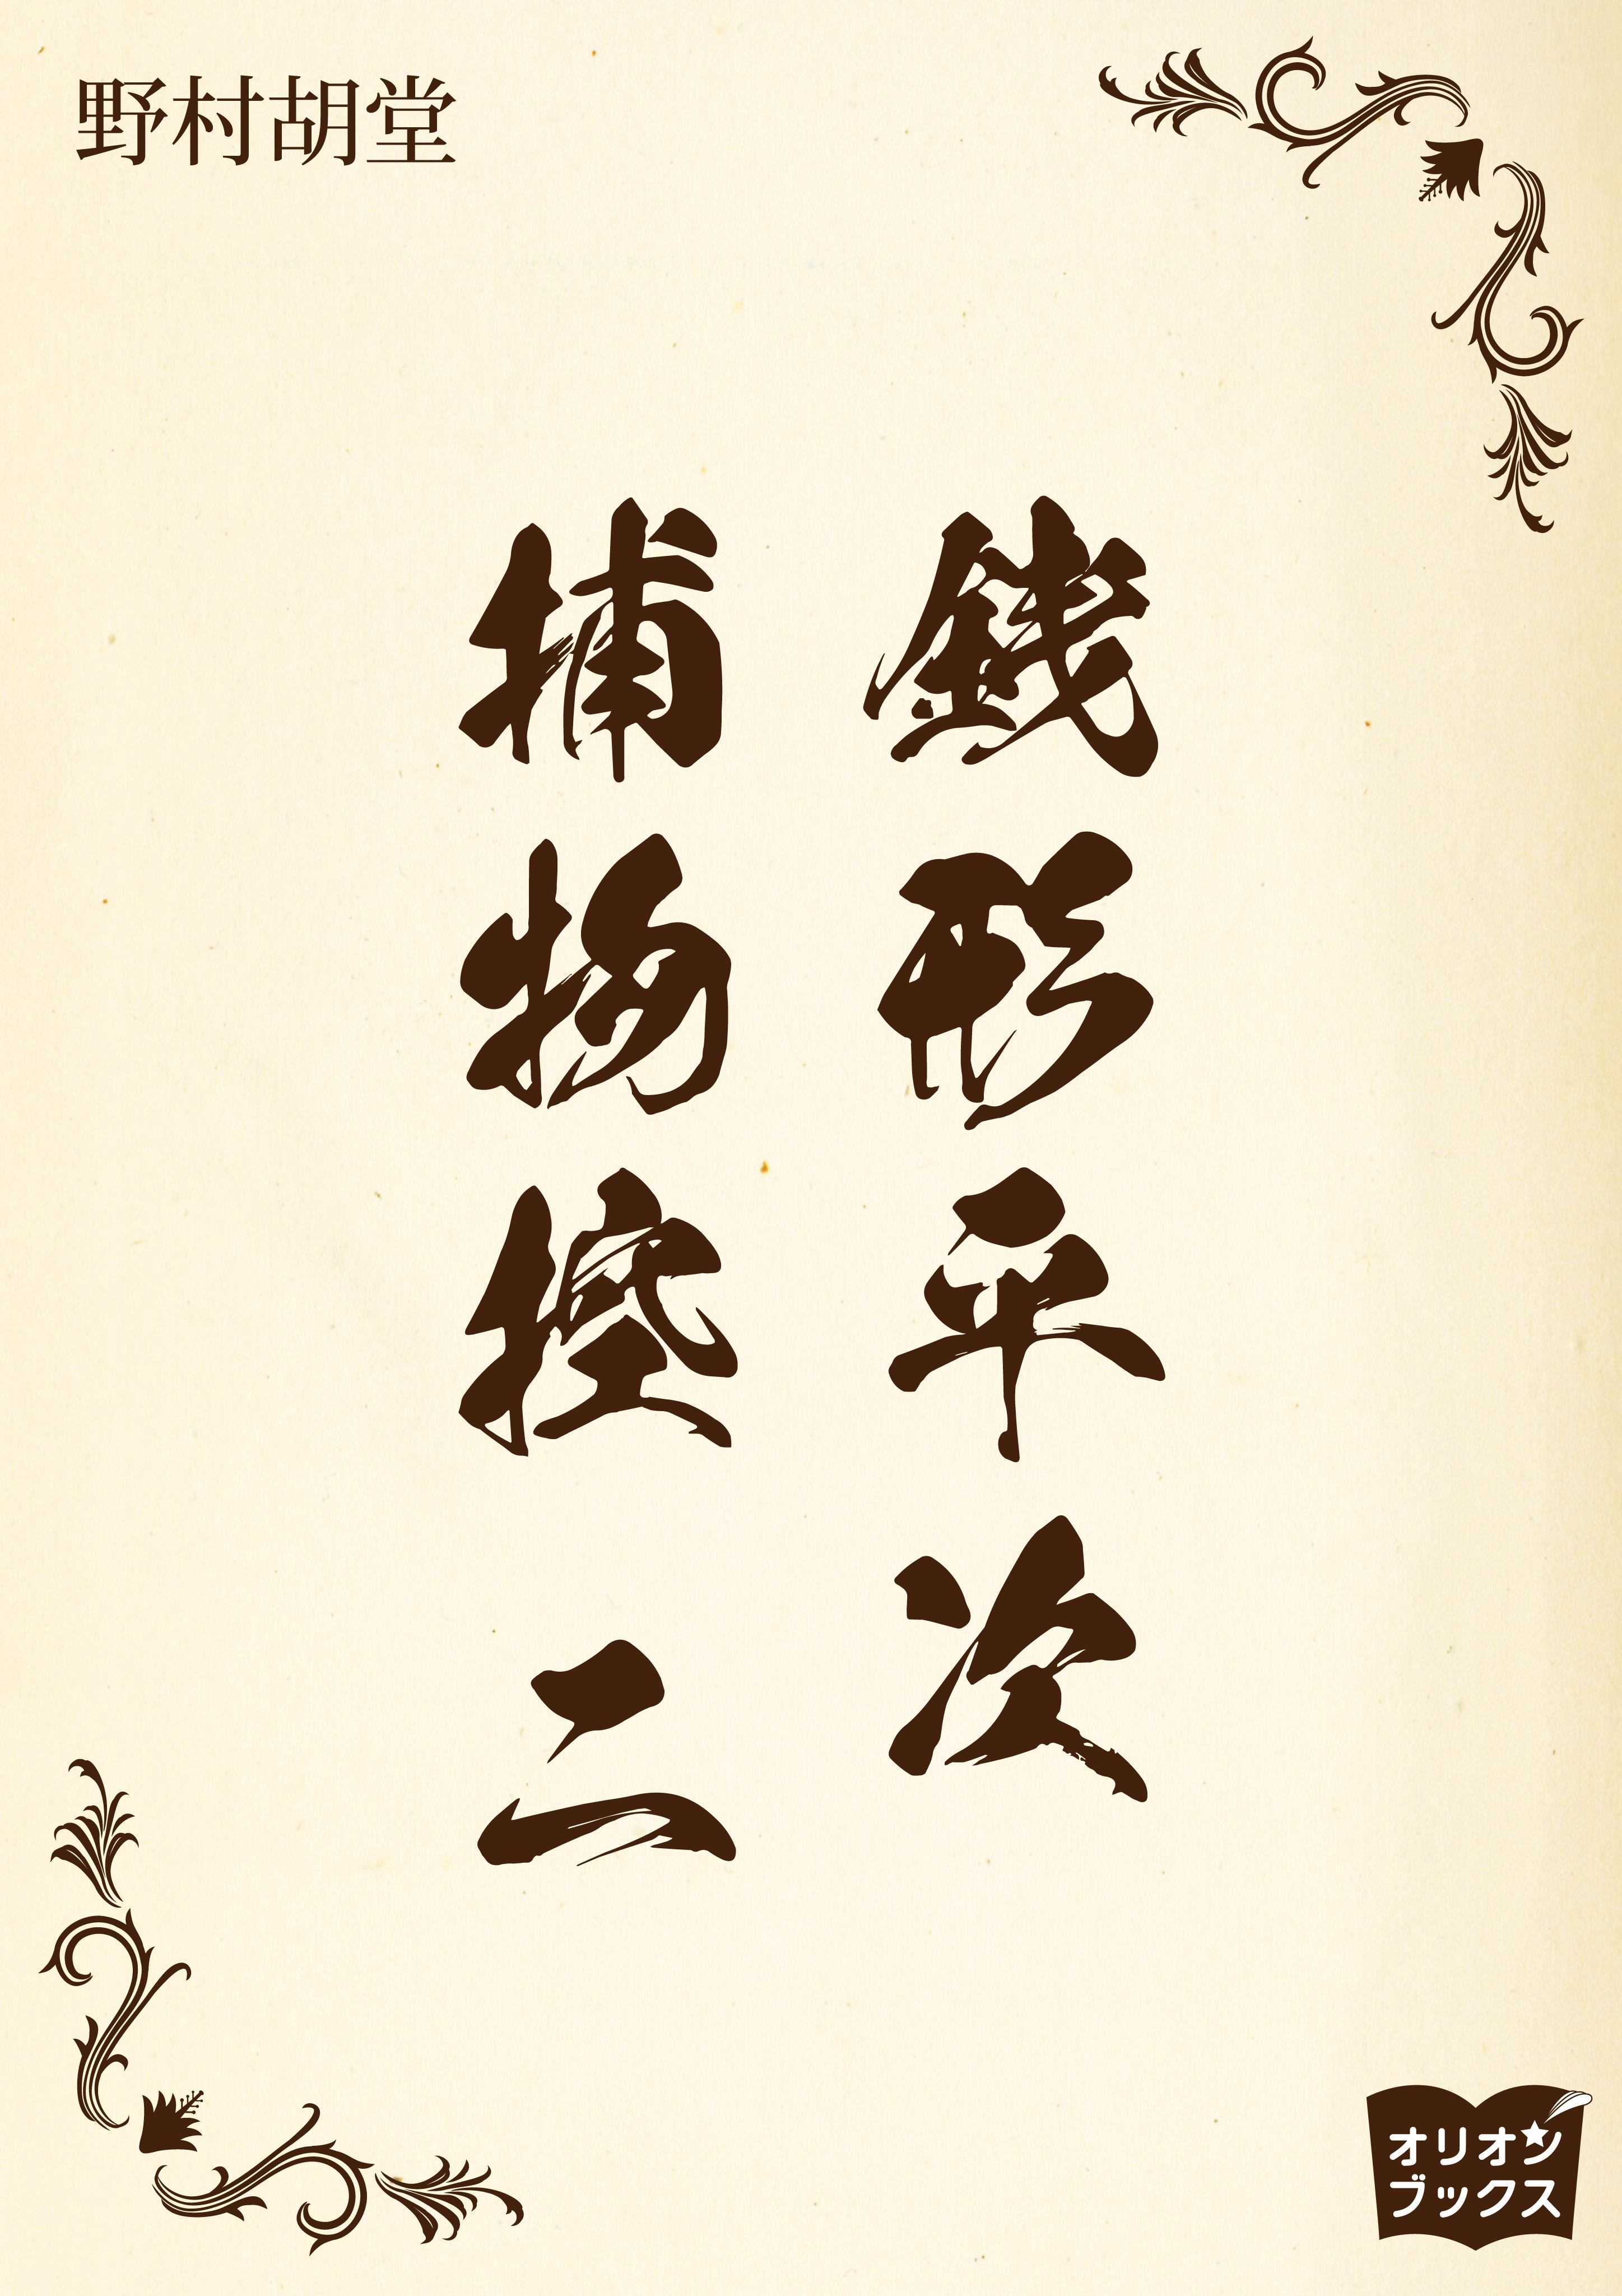 野村胡堂
銭形平次
捕物控 二
オリオン
ブックス